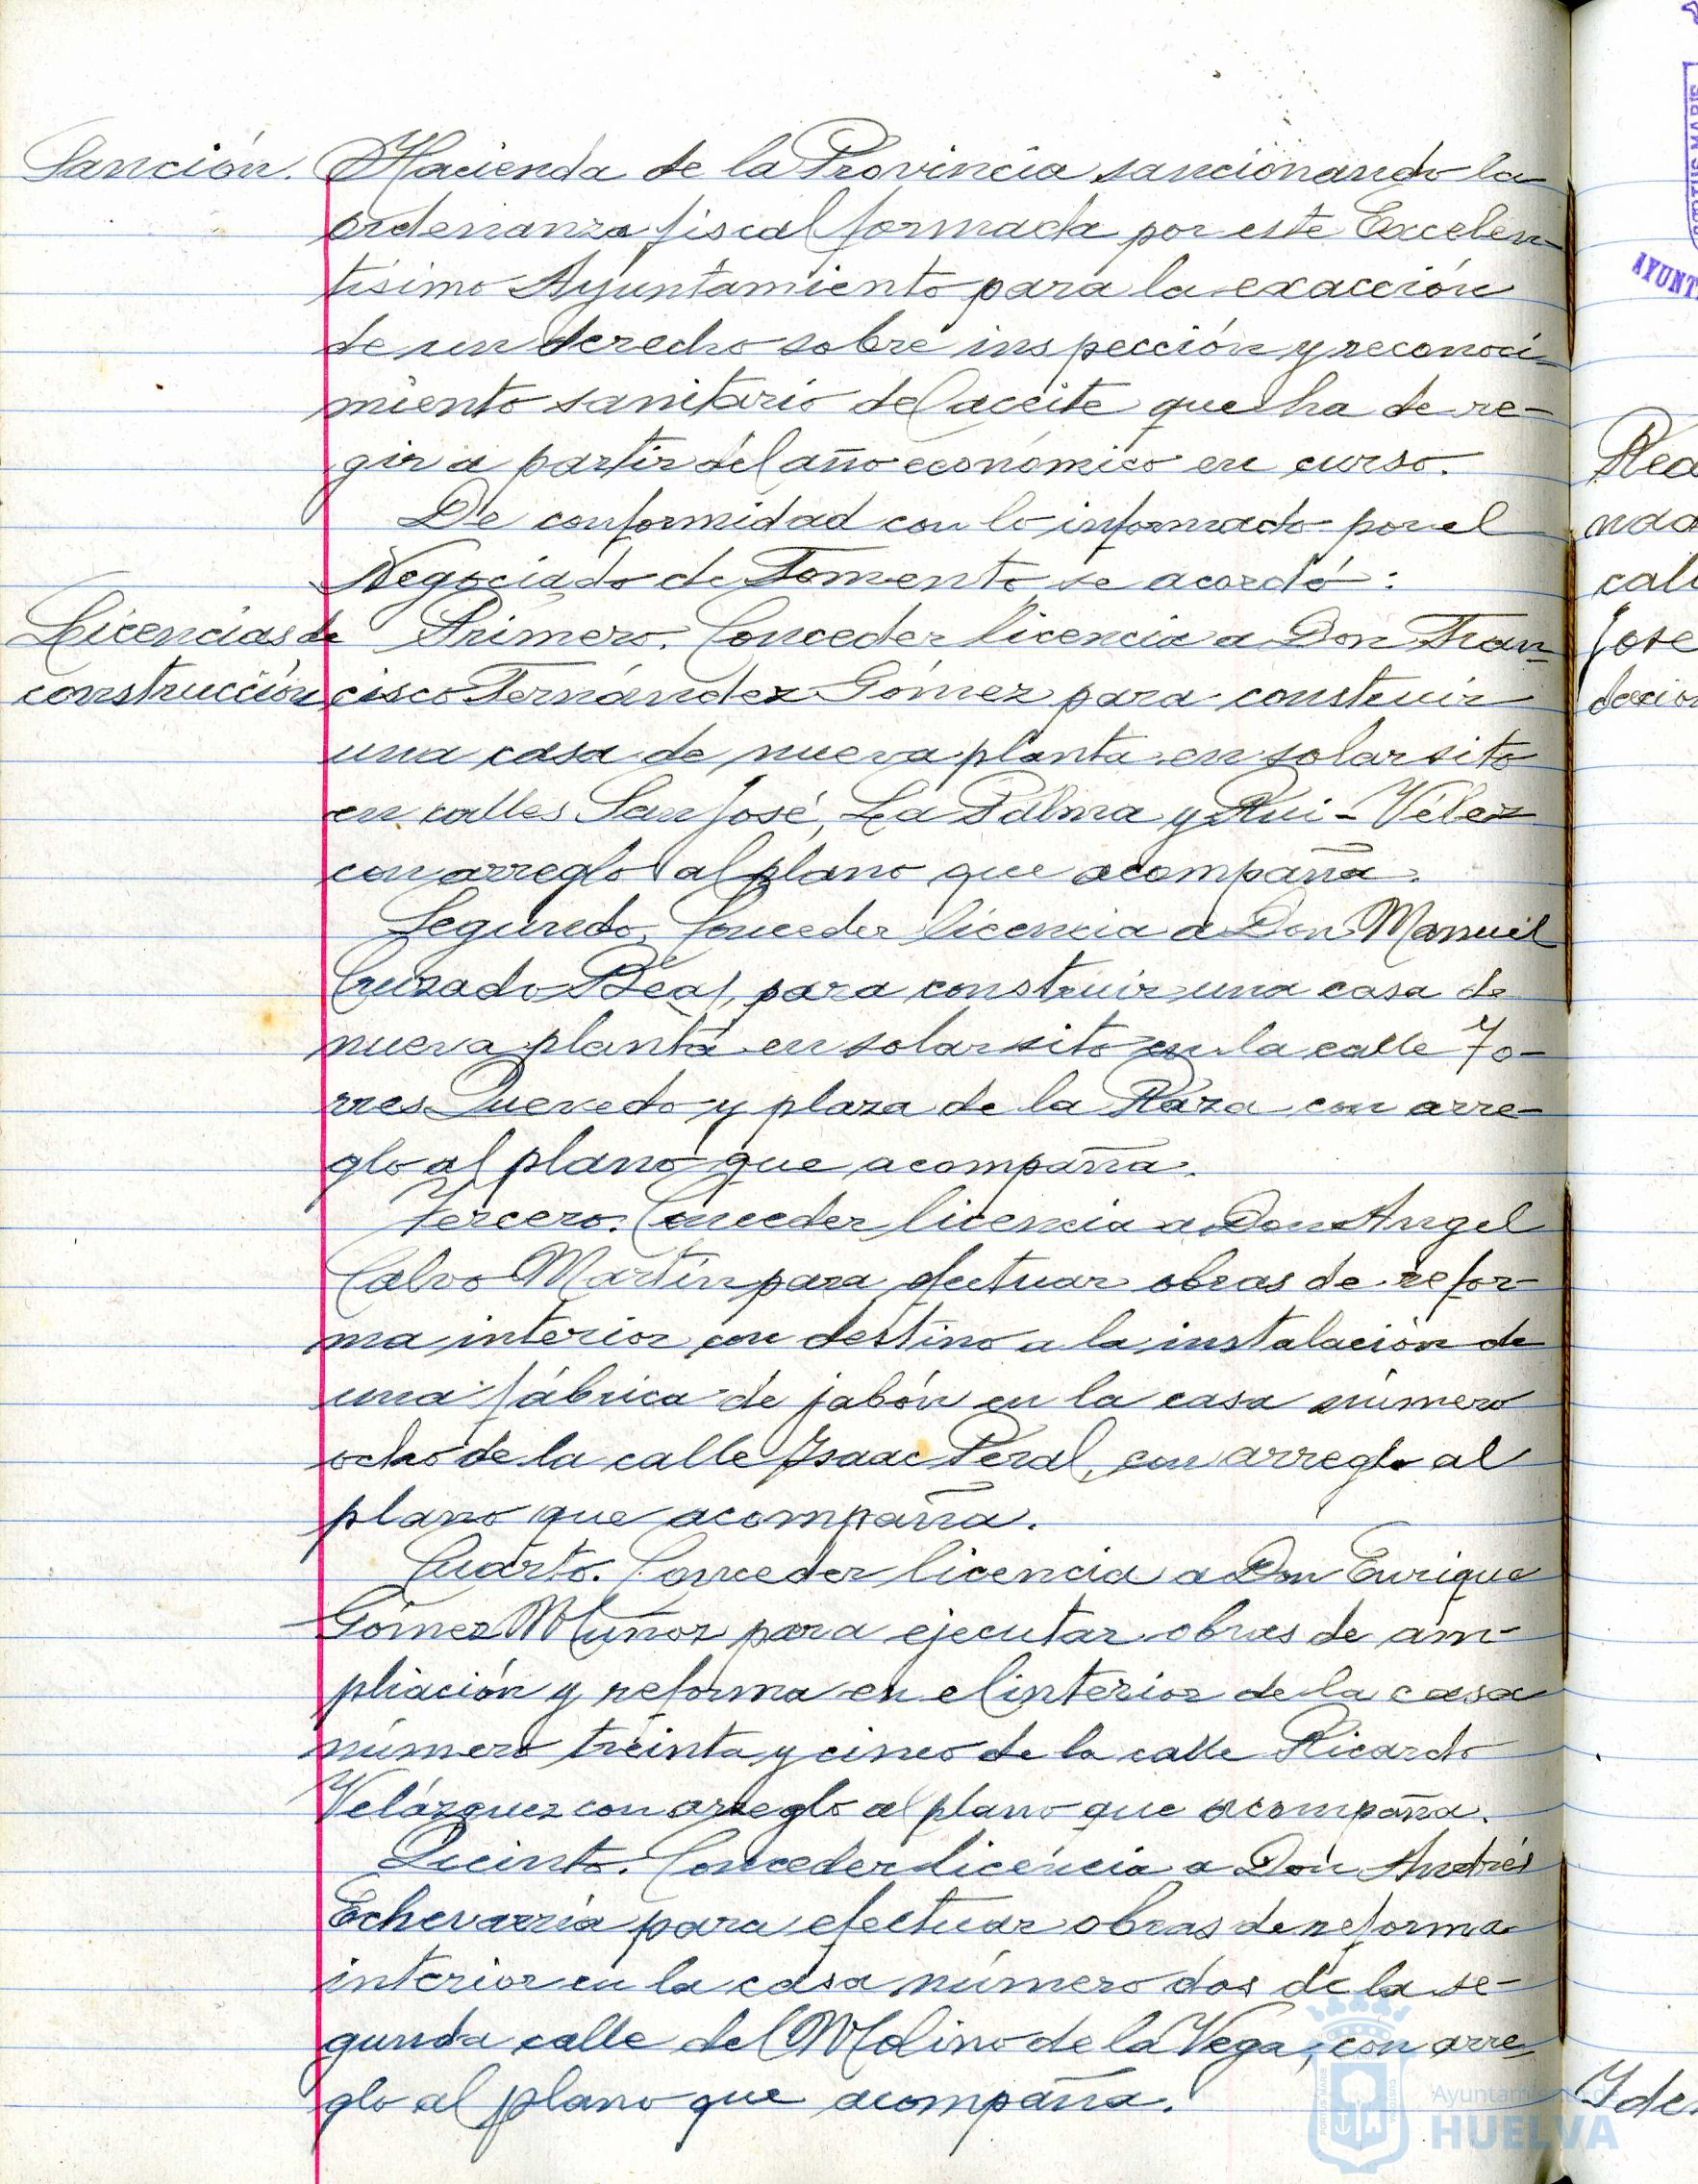 Sanción. Hacienda de la Provincia sancionando la
ordenanza fiscal formada por este Excelen-
tísimo Ayuntamiento para la exacción
de un derecho sobre inspección y reconoci-
miento sanitario del aceite que ha de re-
gir a partir del año económico en curso.
De conformidad con lo informado por el
Negociado de Fomento se acordó:
Licencias de Primero. Conceder licencia a Don Fran-
construcción cisco Fernández Gómez para construir
una casa de nueva planta en solar sito
en calles San José, La Palma y Rui-Vélez
con arreglo al plano que acompaña.
Segundo. Conceder licencia a Don Manuel
Cruzado para construir una casa de
nueva planta en solar sito en la calle To-
rres Quevedo y plaza de la Raza con arre-
glo al plano que acompaña.
Tercero. Conceder licencia a Don Angel
Calvo Martín para efectuar obras de refor-
ma interior con destino a la instalación de
una fábrica de jabón en la casa número
ocho de la calle Isaac Peral, con arreglo al
plano que acompaña.
Cuarto. Conceder licencia a Don Enrique
Gómez Muñoz para ejecutar obras de am-
pliación y reforma en el interior de la casa
número treinta y cinco de la calle Ricardo
Velázquez con arreglo al plano que acompaña.
Quinto. Conceder licencia a Don Andrés
Echevarría para efectuar obras de reforma
interior en la casa número dos de la se-
gunda calle del Molino de la Vega, con arre-
glo al plano que acompaña.
Ayuntamiento de
HUELVA
AYUNT